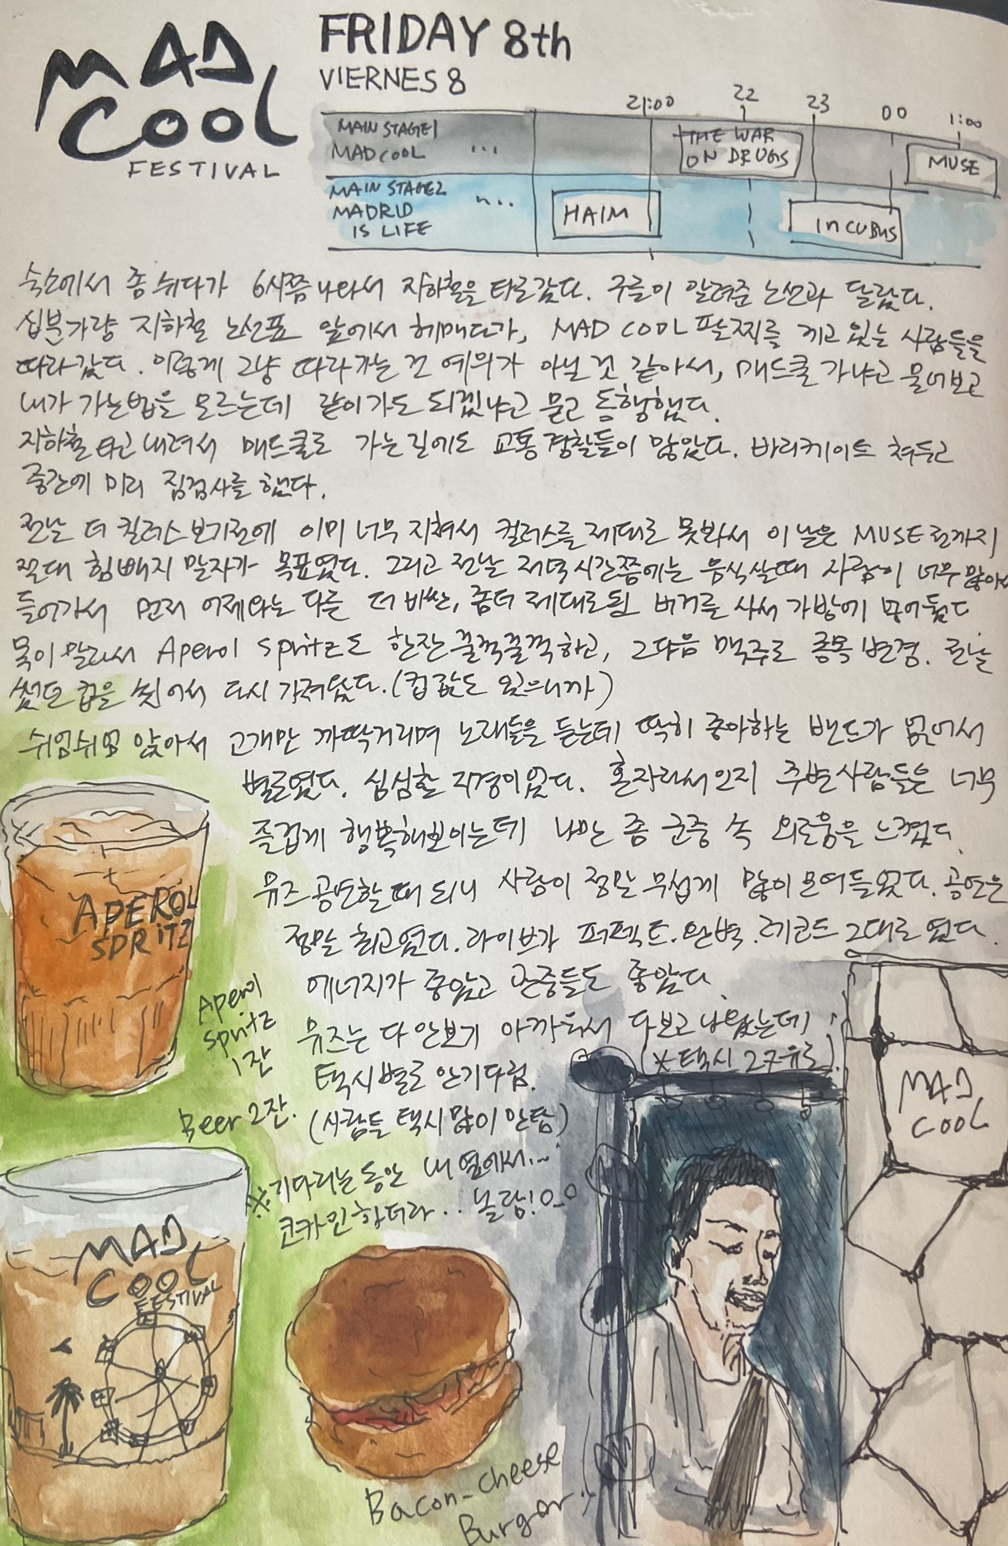 MAD
COOL
FESTIVAL
FRIDAY 8th
VIERNES 8
21:00 22 23 00 1:00
MAIN STAGE1
MADCOOL ...
THE WAR
ON DRUGS
MUSE
MAIN STAGE2
MADRID
IS LIFE ...
HAIM
INCUBUS
숙소에서 좀 쉬다가 6시쯤 나와서 지하철을 타러 갔다. 구글이 알려준 노선과 달랐다.
십분가량 지하철 노선표 앞에서 헤매다가, MAD COOL 팔찌를 끼고 있는 사람들을
따라갔다. 이렇게 그냥 따라가는 건 예의가 아닐 것 같아서, 매드쿨 가냐고 물어보고
내가 가는법을 모르는데 같이가도 되겠냐고 묻고 동행했다.
지하철 타고 내려서 매드쿨로 가는 길에도 교통 경찰들이 많았다. 바리케이트 쳐두고
중간에 미리 짐검사를 했다.
전날 더 킬러스 보기전에 이미 너무 지쳐서 킬러스를 제대로 못봐서 이 날은 MUSE 전까지
절대 힘빼지 말자가 목표였다. 그리고 전날 저녁시간쯤에는 음식살때 사람이 너무 많아서
들어가서 먼저 어제와는 다른 더 비싼, 좀더 제대로된 버거를 사서 가방에 넣어뒀다
목이 말라서 Aperol Spritz도 한잔 꿀꺽꿀꺽하고, 그다음 맥주로 종목 변경. 전날
썼던 컵을 씻어서 다시 가져왔다. (컵값도 있으니까)
쉬엄쉬엄 앉아서 고개만 까딱거리며 노래들을 듣는데 딱히 좋아하는 밴드가 없어서
별로였다. 심심할 지경이었다. 혼자라서인지 주변사람들은 너무
즐겁게 행복해보이는데 나만 좀 군중 속 외로움을 느꼈다.
뮤즈 공연할 때 되니 사람이 정말 무섭게 많이 모여들었다. 공연은
정말 최고였다. 라이브가 퍼펙트. 완벽. 레코드 그대로 였다.
에너지가 좋았고 관중들도 좋았다.
뮤즈는 다 안보기 아까워서 다보고 나왔는데
택시 별로 안기다림. (※택시 27유로)
(사람들 택시 많이 안탐)
※기다리는 동안 내 옆에서...
코카인 하더라.. 놀람! O_O
APEROL
SPRITZ
Aperol
spritz
1잔
Beer 2잔.
MAD
COOL
FESTIVAL
Bacon-cheese
Burgar
MAD
COOL